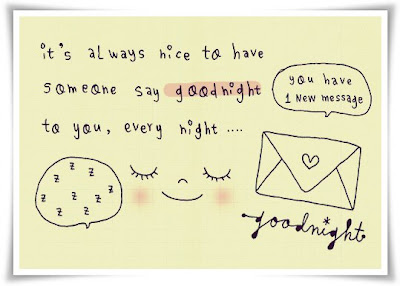 it's always nice to have
someone say goodnight
to you, every night ....
you have
1 New message
z z
z z z
z z z
z z
goodnight